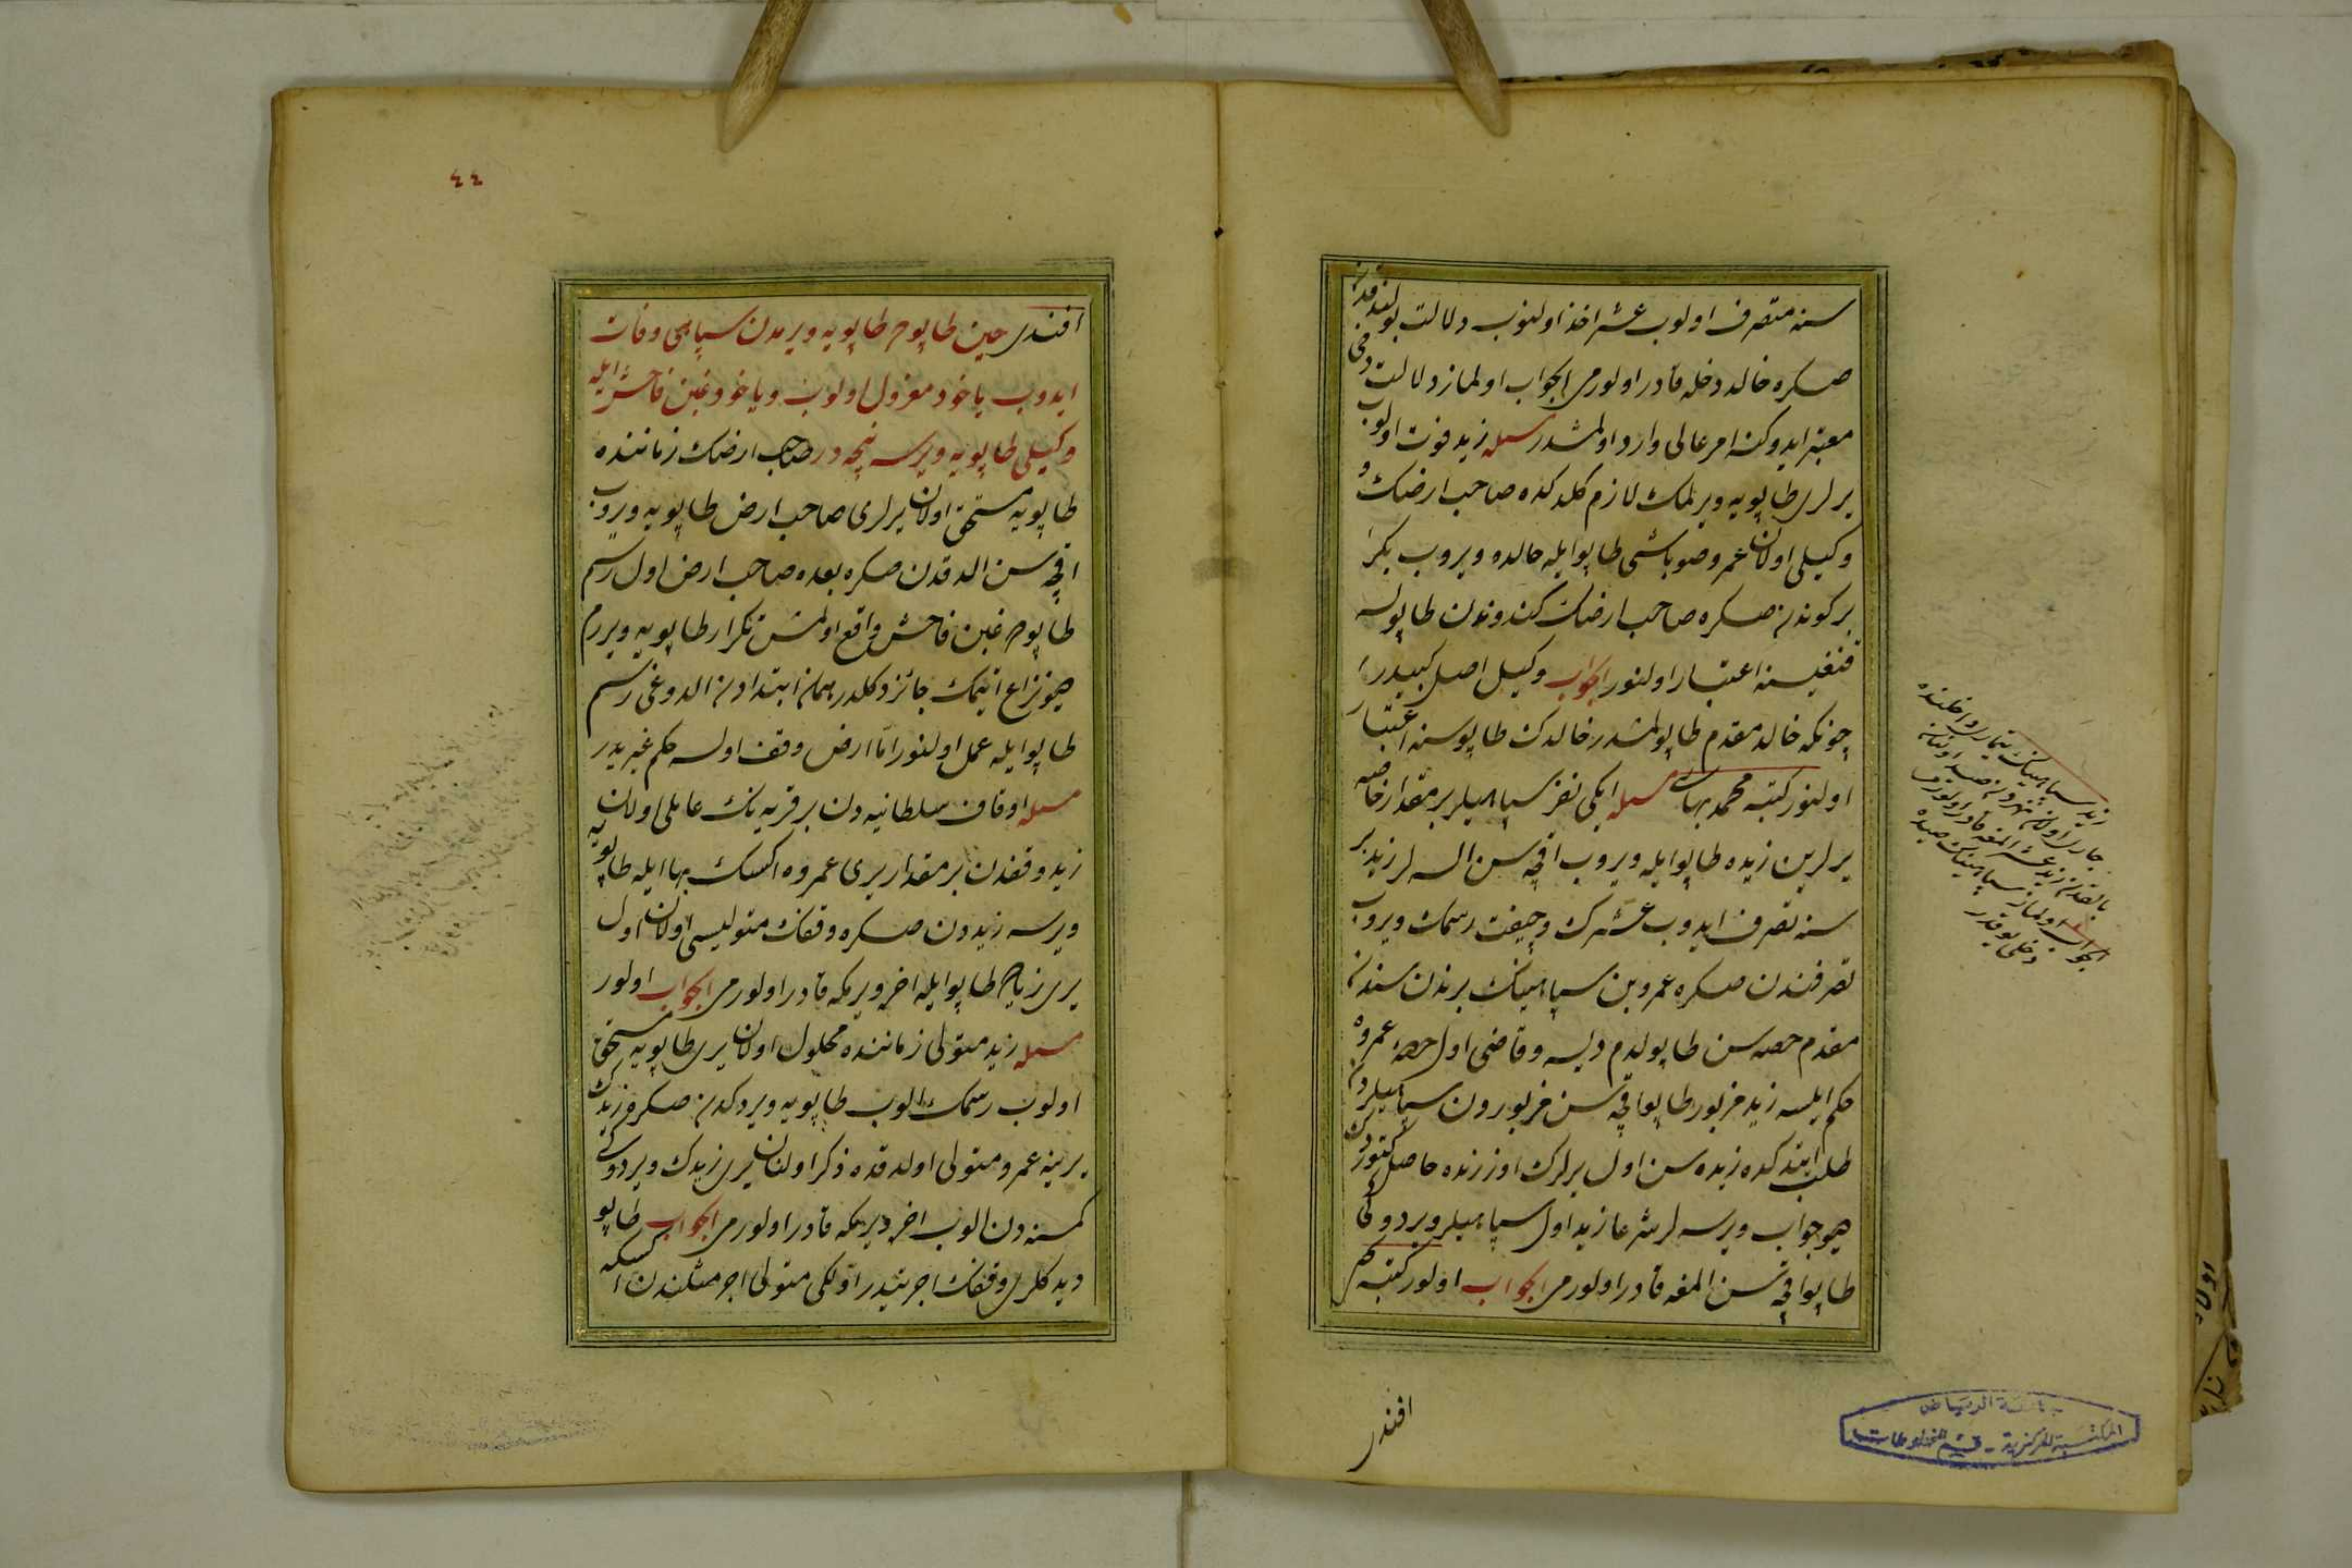 سنه متصرف اولوب عشر اخذ اولنوب دلالت بولندقدن
صكره خالد دخله قادر اولورمی الجواب اولماز دلالت دخی
معتبر ایدوكنه امر عالی وارد اولمشدر مسئله زید فوت اولوب
یرلری طاپویه ویرلمك لازم كلدكده صاحب ارضك و
وكیلی اولان عمرو صوباشی طاپو ایله خالده ویروب بكر
بر كوندن صكره صاحب ارضك كندوندن طاپولسه
قنغیسنه اعتبار اولنور الجواب وكیل اصل كبیدر
چونكه خالد مقدم طاپولمشدر خالدك طاپوسنه اعتبار
اولنور كتبه محمد بهایی مسئله ایكی نفر سپاهیلر بر مقدار خاصه
یرلرین زیده طاپو ایله ویروب اقچه سن السه لر زید بر
سنه تصرف ایدوب عشرك و چفت رسمك ویروب
تصرفندن صكره عمرو بن سپاهینك برندن سندن
مقدم حصه سن طاپولدم دیسه و قاضی اول حصه عمروه
حكم ایلسه زید مزبور طاپو اقچه سن مزبورون سپاهیلردن
طلب ایتدكده زیده سن اول یرلرك اوزرنده حاصل كتوردك
دیو جواب ویرسه لر شرعا زید اول سپاهیلره ویردوكی
طاپو اقچه سن المغه قادر اولورمی الجواب اولور كتبه
افندی
زید سپاهینك تیماری داخلنده
جاری اولان نهردن صید اولنان
بالقدن زید عشر المغه قادر اولورمی
الجواب اولماز سپاهینك صیده
دخلی یوقدر
جامعة الرياض
المكتبة المركزية - قسم المخطوطات
٤٤
افندی حین طاپوده طاپویه ویرمدن سپاهی وفات
ایدوب یاخود معزول اولوب ویاخود غبن فاحش ایله
وكیلی طاپویه ویرسه نیجه در صاحب ارضك زماننده
طاپویه مستحق اولان یرلری صاحب ارض طاپویه ویروب
اقچه سن الدقدن صكره بعده صاحب ارض اول رسم
طاپوده غبن فاحش واقع اولمش تكرار طاپویه ویررم
دیو نزاع ایتمك جائز دكلدر همان ابتدادن الدوغی رسم
طاپو ایله عمل اولنور اما ارض وقف اولسه حكم غیریدر
مسئله اوقاف سلطانیه دن بر قریه نك عاملی اولان
زید وقفدن بر مقدار یری عمروه اكسك بها ایله طاپویه
ویرسه زیددن صكره وقفك متولیسی اولان اول
یری زیاده طاپو ایله اخره ویرمكه قادر اولورمی الجواب اولور
مسئله زید متولی زماننده محلول اولان یری طاپویه مستحق
اولوب رسمك الوب طاپویه ویردكدن صكره زیدك
یرینه عمرو متولی اولدقده ذكر اولنان یری زیدك ویردوكی
كمسنه دن الوب اخره ویرمكه قادر اولورمی الجواب طاپو
دیدكلری وقفك اجرتیدر اولكی متولی اجر مثلندن اكسكه